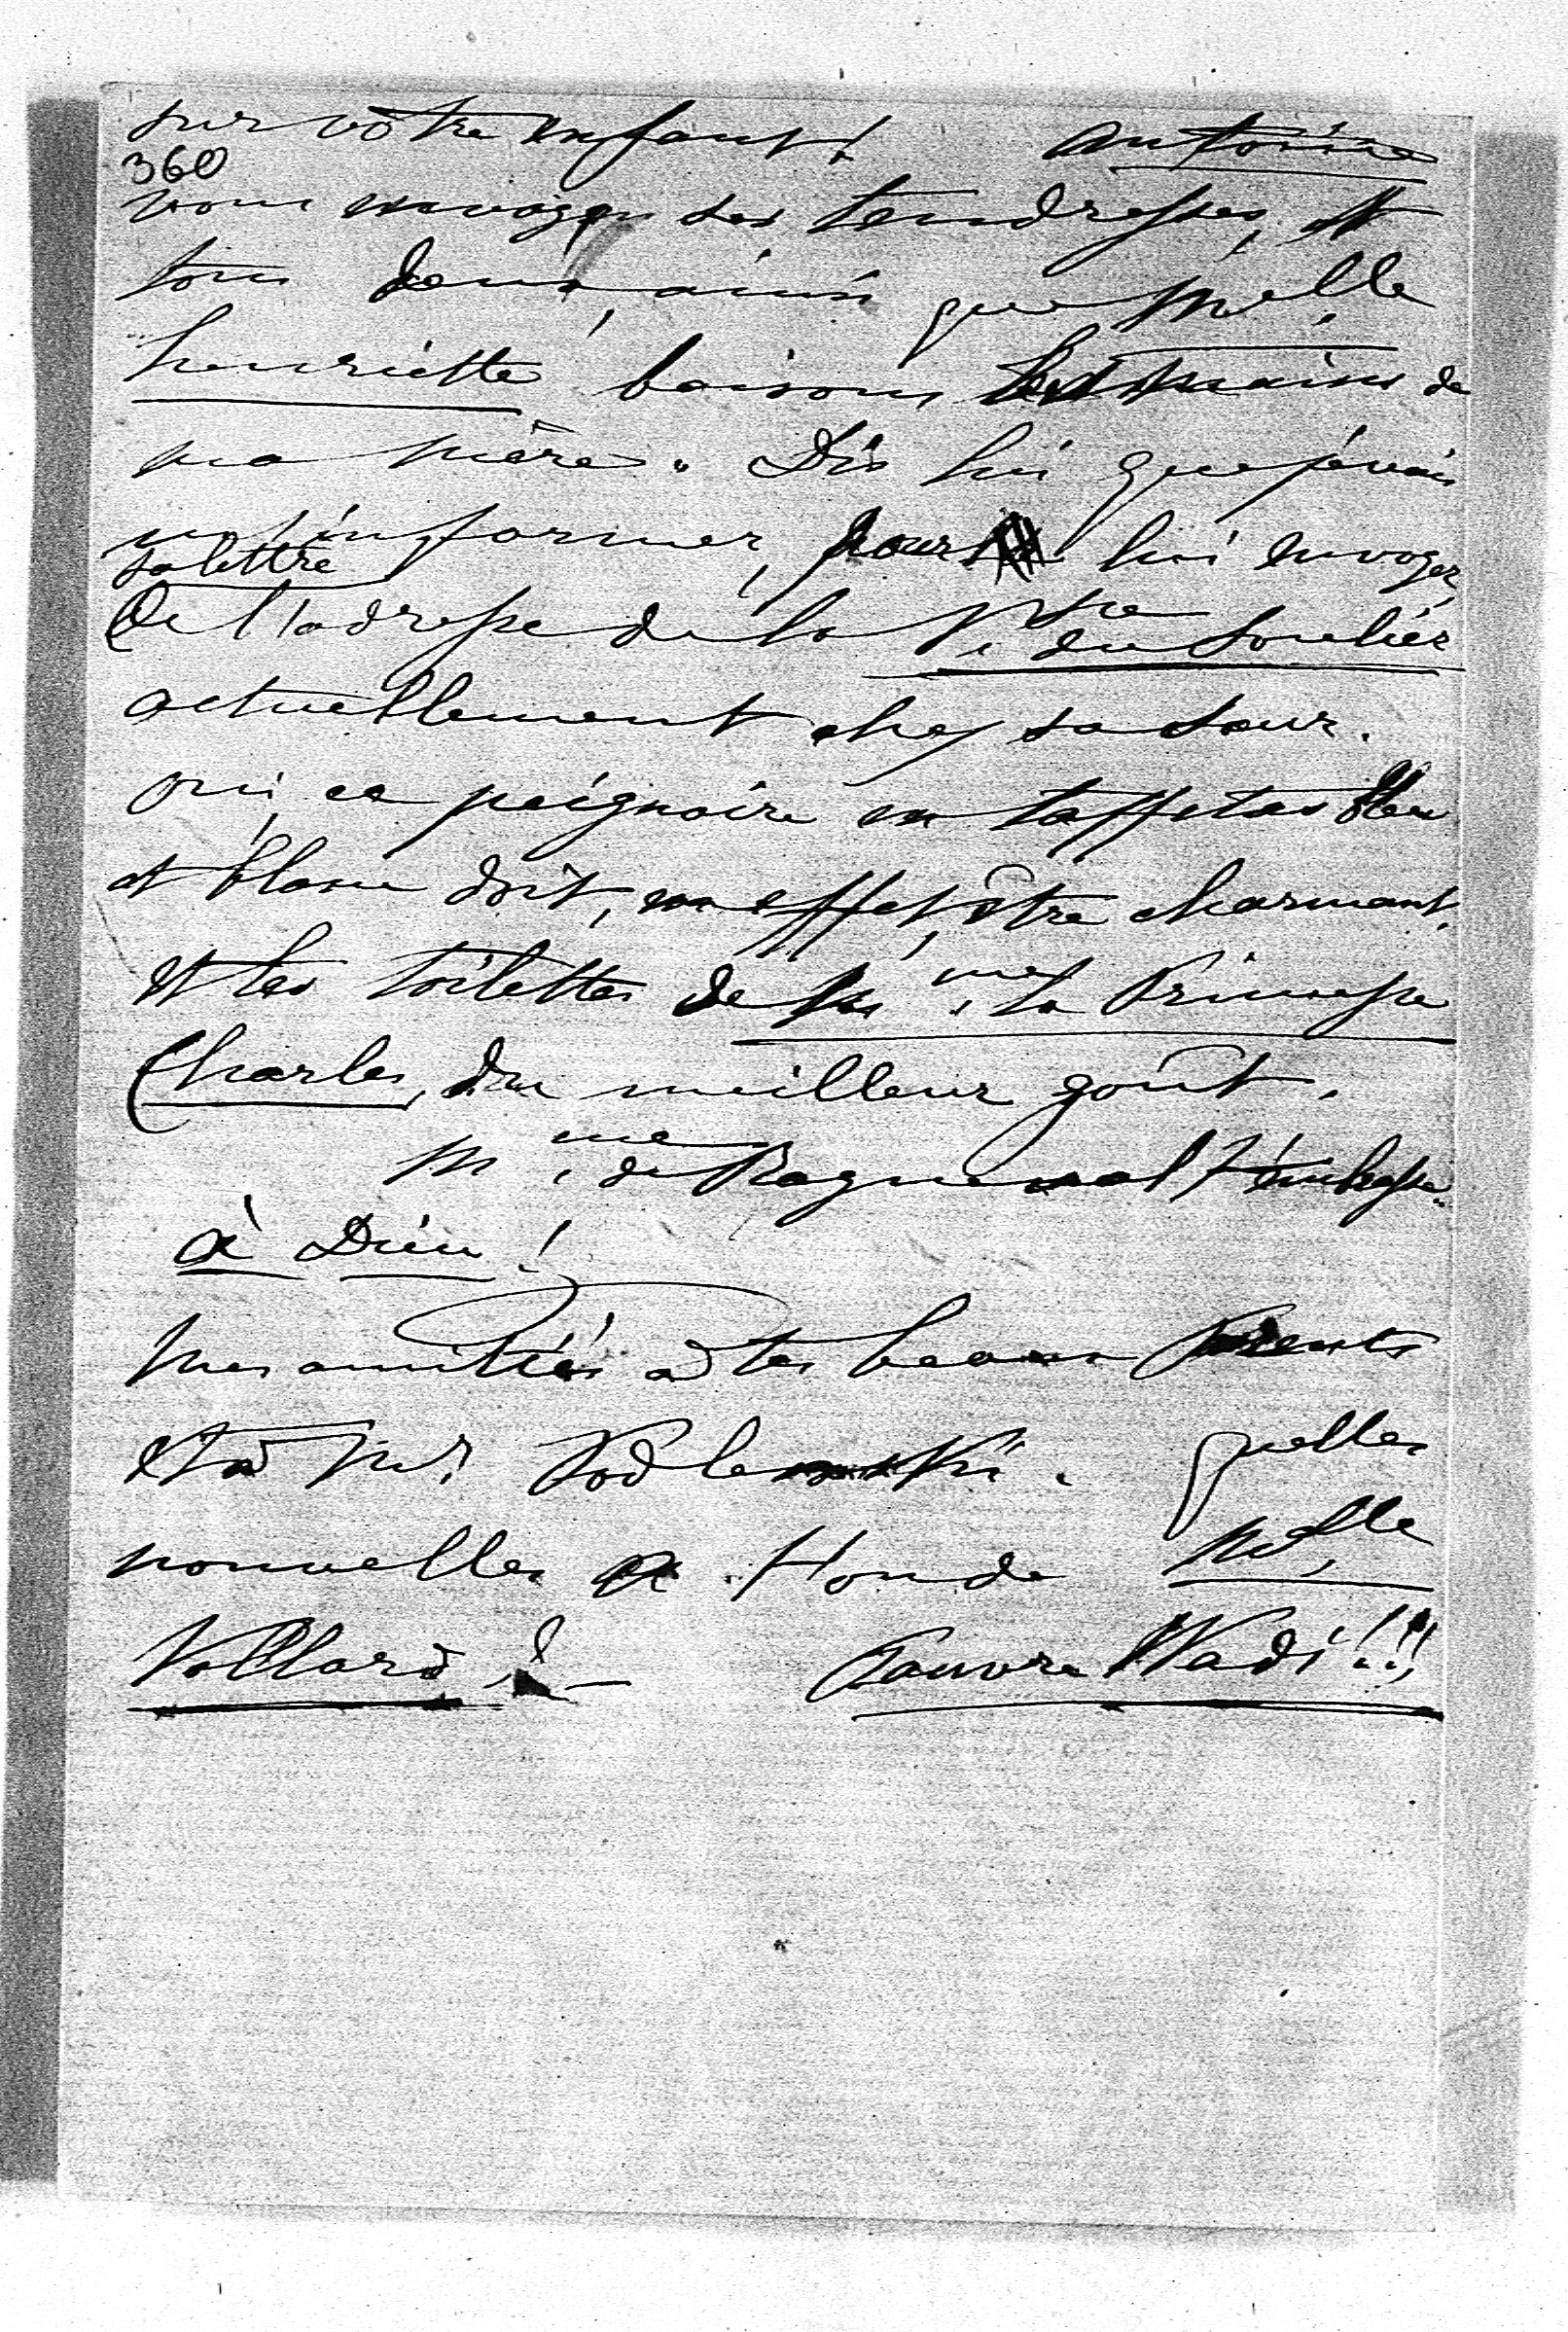 sur votre enfant! Antoine
360
vous envoye ses tendresses, et
tous deux, ainsi que Melle
henriette, baisons les mains de
ma mère. Dis lui que je vais
m'informer, pour lui envoyer
sa lettre
De l'adresse de la Vtsse du Soulier
actuellement chez sa sœur.
oui, ce peignoire en taffetas bleu
et blanc doit, en effet, être charmant,
et les toilettes de Mme la Princesse
Charles, du meilleur goût.
Mme de Raguenal t'embrasse.
à Dieu!
Mes amitiés à tes beaux Parents
et à Mr Podlewski. quelles
nouvelles a t'on de Melle
Vollard? Pauvre Wadi!!!